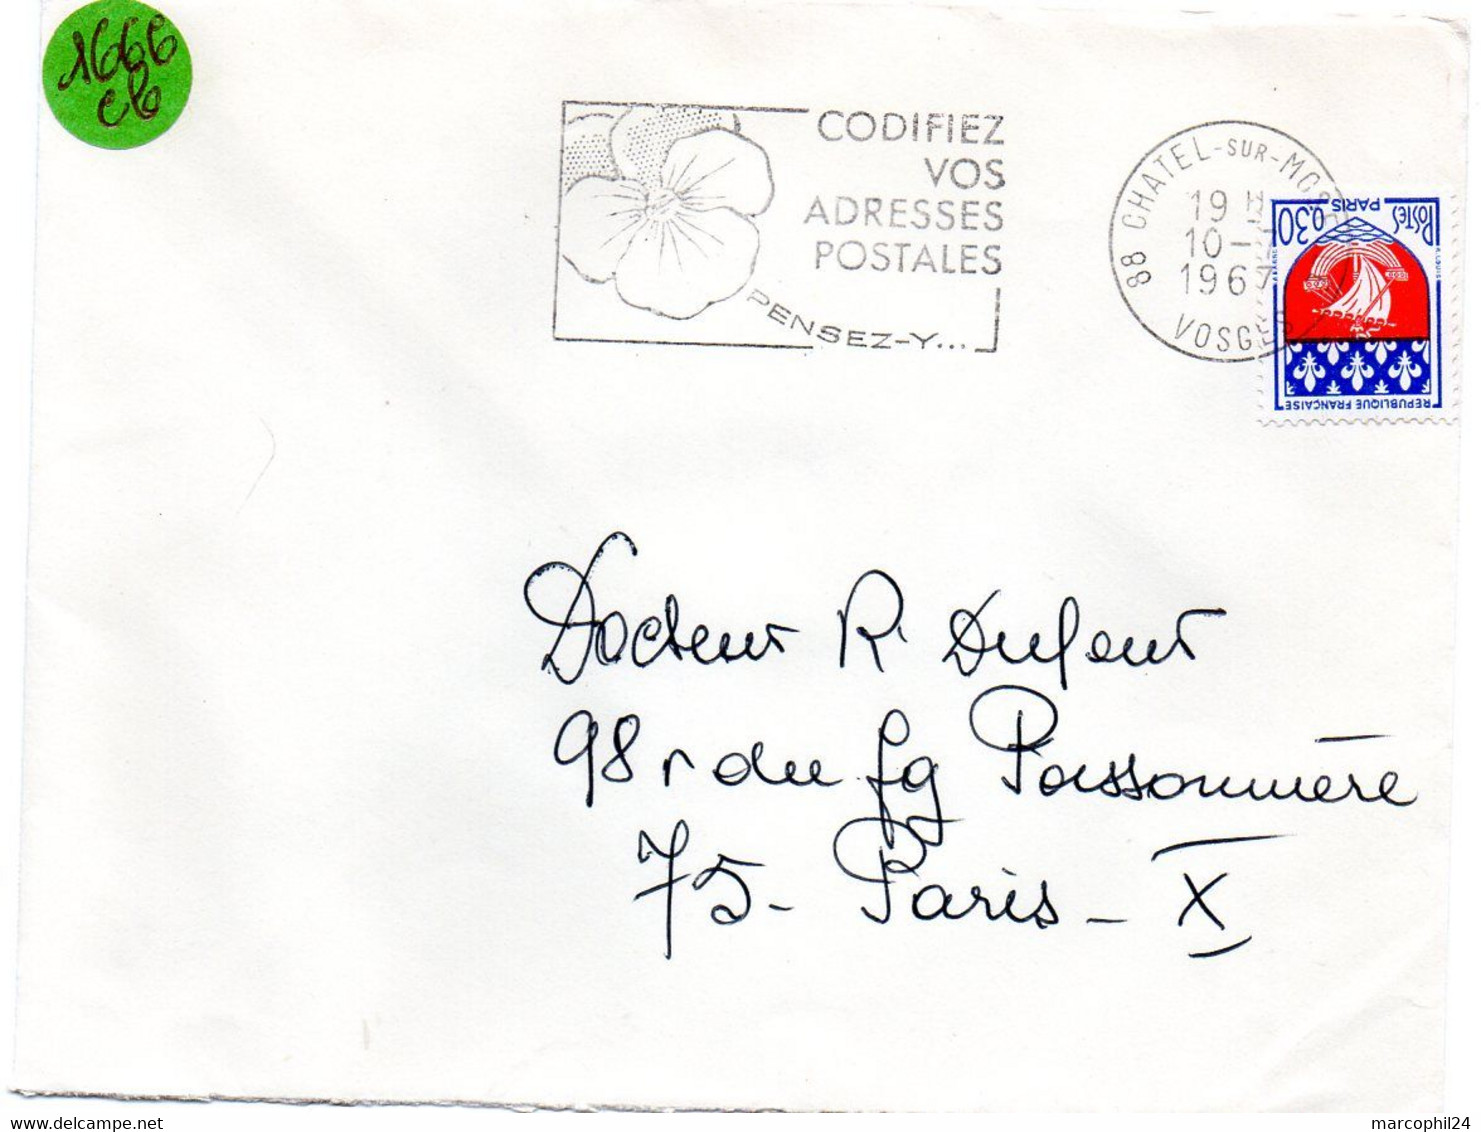 1666
CODIFIEZ
VOS
ADRESSES
POSTALES
PENSEZ-Y...
88 CHATEL-SUR-MOS
19 H
10-
1967
VOSGES
0.30 POSTES
PARIS
REPUBLIQUE FRANÇAISE
Docteur R. Dufour
98 r du fg Poissonnière
75 - Paris - X
marcophil24